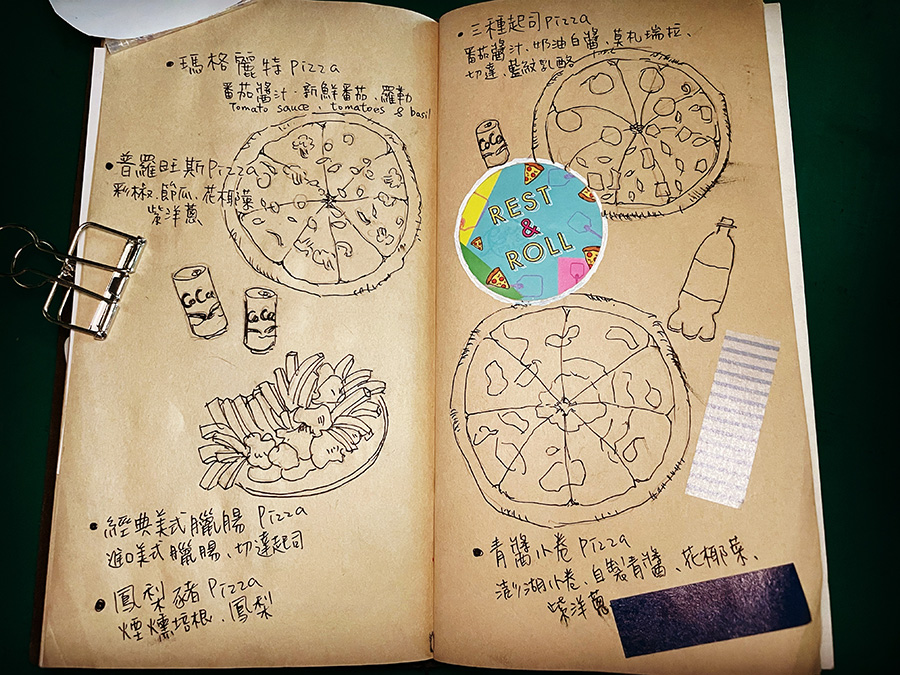 • 瑪格麗特 Pizza
番茄醬汁、新鮮番茄、羅勒
Tomato sauce、tomatoes & basil
• 普羅旺斯 Pizza
彩椒、節瓜、花椰菜
紫洋蔥
CoCa
CoCa
• 經典美式臘腸 Pizza
進口美式臘腸、切達起司
• 鳳梨豬 Pizza
煙燻培根、鳳梨
• 三種起司 Pizza
番茄醬汁、奶油白醬、莫札瑞拉、
切達、藍紋乳酪
CoCa
REST
&
ROLL
• 青醬小卷 Pizza
澎湖小卷、自製青醬、花椰菜、
紫洋蔥